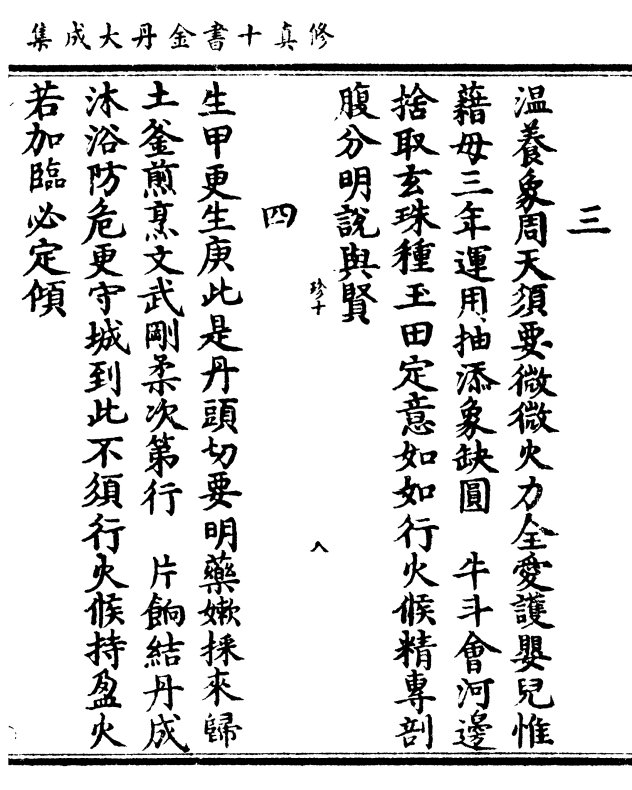 修真十書金丹大成集
三
温養象周天須要微微火力全愛護嬰兒惟
藉母三年運用抽添象缺圓　牛斗會河邊
捨取玄珠種玉田定意如如行火候精專剖
腹分明說與賢
珍十
八
四
生甲更生庚此是丹頭切要明藥嫩採來歸
土釜煎烹文武剛柔次第行　片餉結丹成
沐浴防危更守城到此不須行火候持盈火
若加臨必定傾